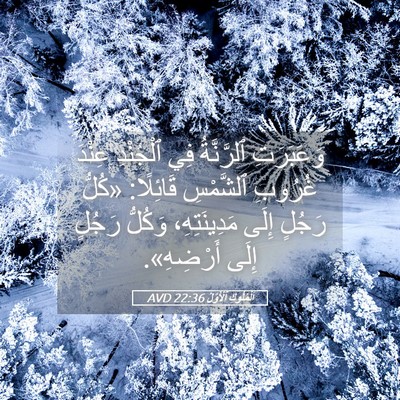 وَعَبَرَتِ ٱلرَّنَّةُ فِي ٱلْجُنْدِ عِنْدَ
غُرُوبِ ٱلشَّمْسِ قَائِلًا: «كُلُّ
رَجُلٍ إِلَى مَدِينَتِهِ، وَكُلُّ رَجُلٍ
إِلَى أَرْضِهِ».
اَلْمُلُوكِ ٱلْأَوَّلُ 22:36 AVD